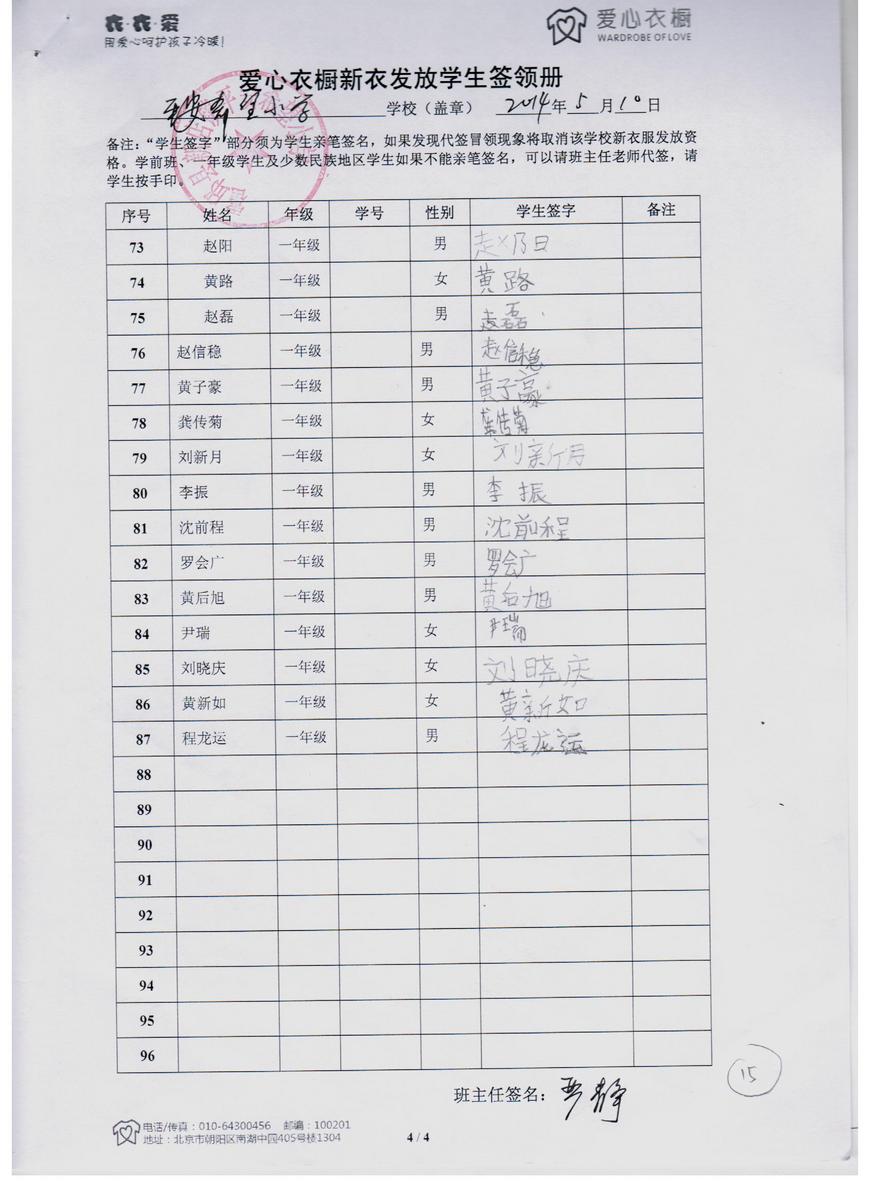 衣·衣·爱
用爱心呵护孩子冷暖!
爱心衣橱
WARDROBE OF LOVE
爱心衣橱新衣发放学生签领册
希望小学 学校（盖章） 2014年5月10日
备注：“学生签字”部分须为学生亲笔签名，如果发现代签冒领现象将取消该学校新衣服发放资
格。学前班、一年级学生及少数民族地区学生如果不能亲笔签名，可以请班主任老师代签，请
学生按手印。
序号 姓名 年级 学号 性别 学生签字 备注
73 赵阳 一年级 男 赵阳
74 黄路 一年级 女 黄路
75 赵磊 一年级 男 赵磊
76 赵信稳 一年级 男 赵信稳
77 黄子豪 一年级 男 黄子豪
78 龚传菊 一年级 女 龚传菊
79 刘新月 一年级 女 刘新月
80 李振 一年级 男 李振
81 沈前程 一年级 男 沈前程
82 罗会广 一年级 男 罗会广
83 黄后旭 一年级 男 黄后旭
84 尹瑞 一年级 女 尹瑞
85 刘晓庆 一年级 女 刘晓庆
86 黄新如 一年级 女 黄新如
87 程龙运 一年级 男 程龙运
88
89
90
91
92
93
94
95
96
班主任签名：贾静
15
电话/传真：010-64300456 邮编：100201
地址：北京市朝阳区南湖中园405号楼1304
4 / 4